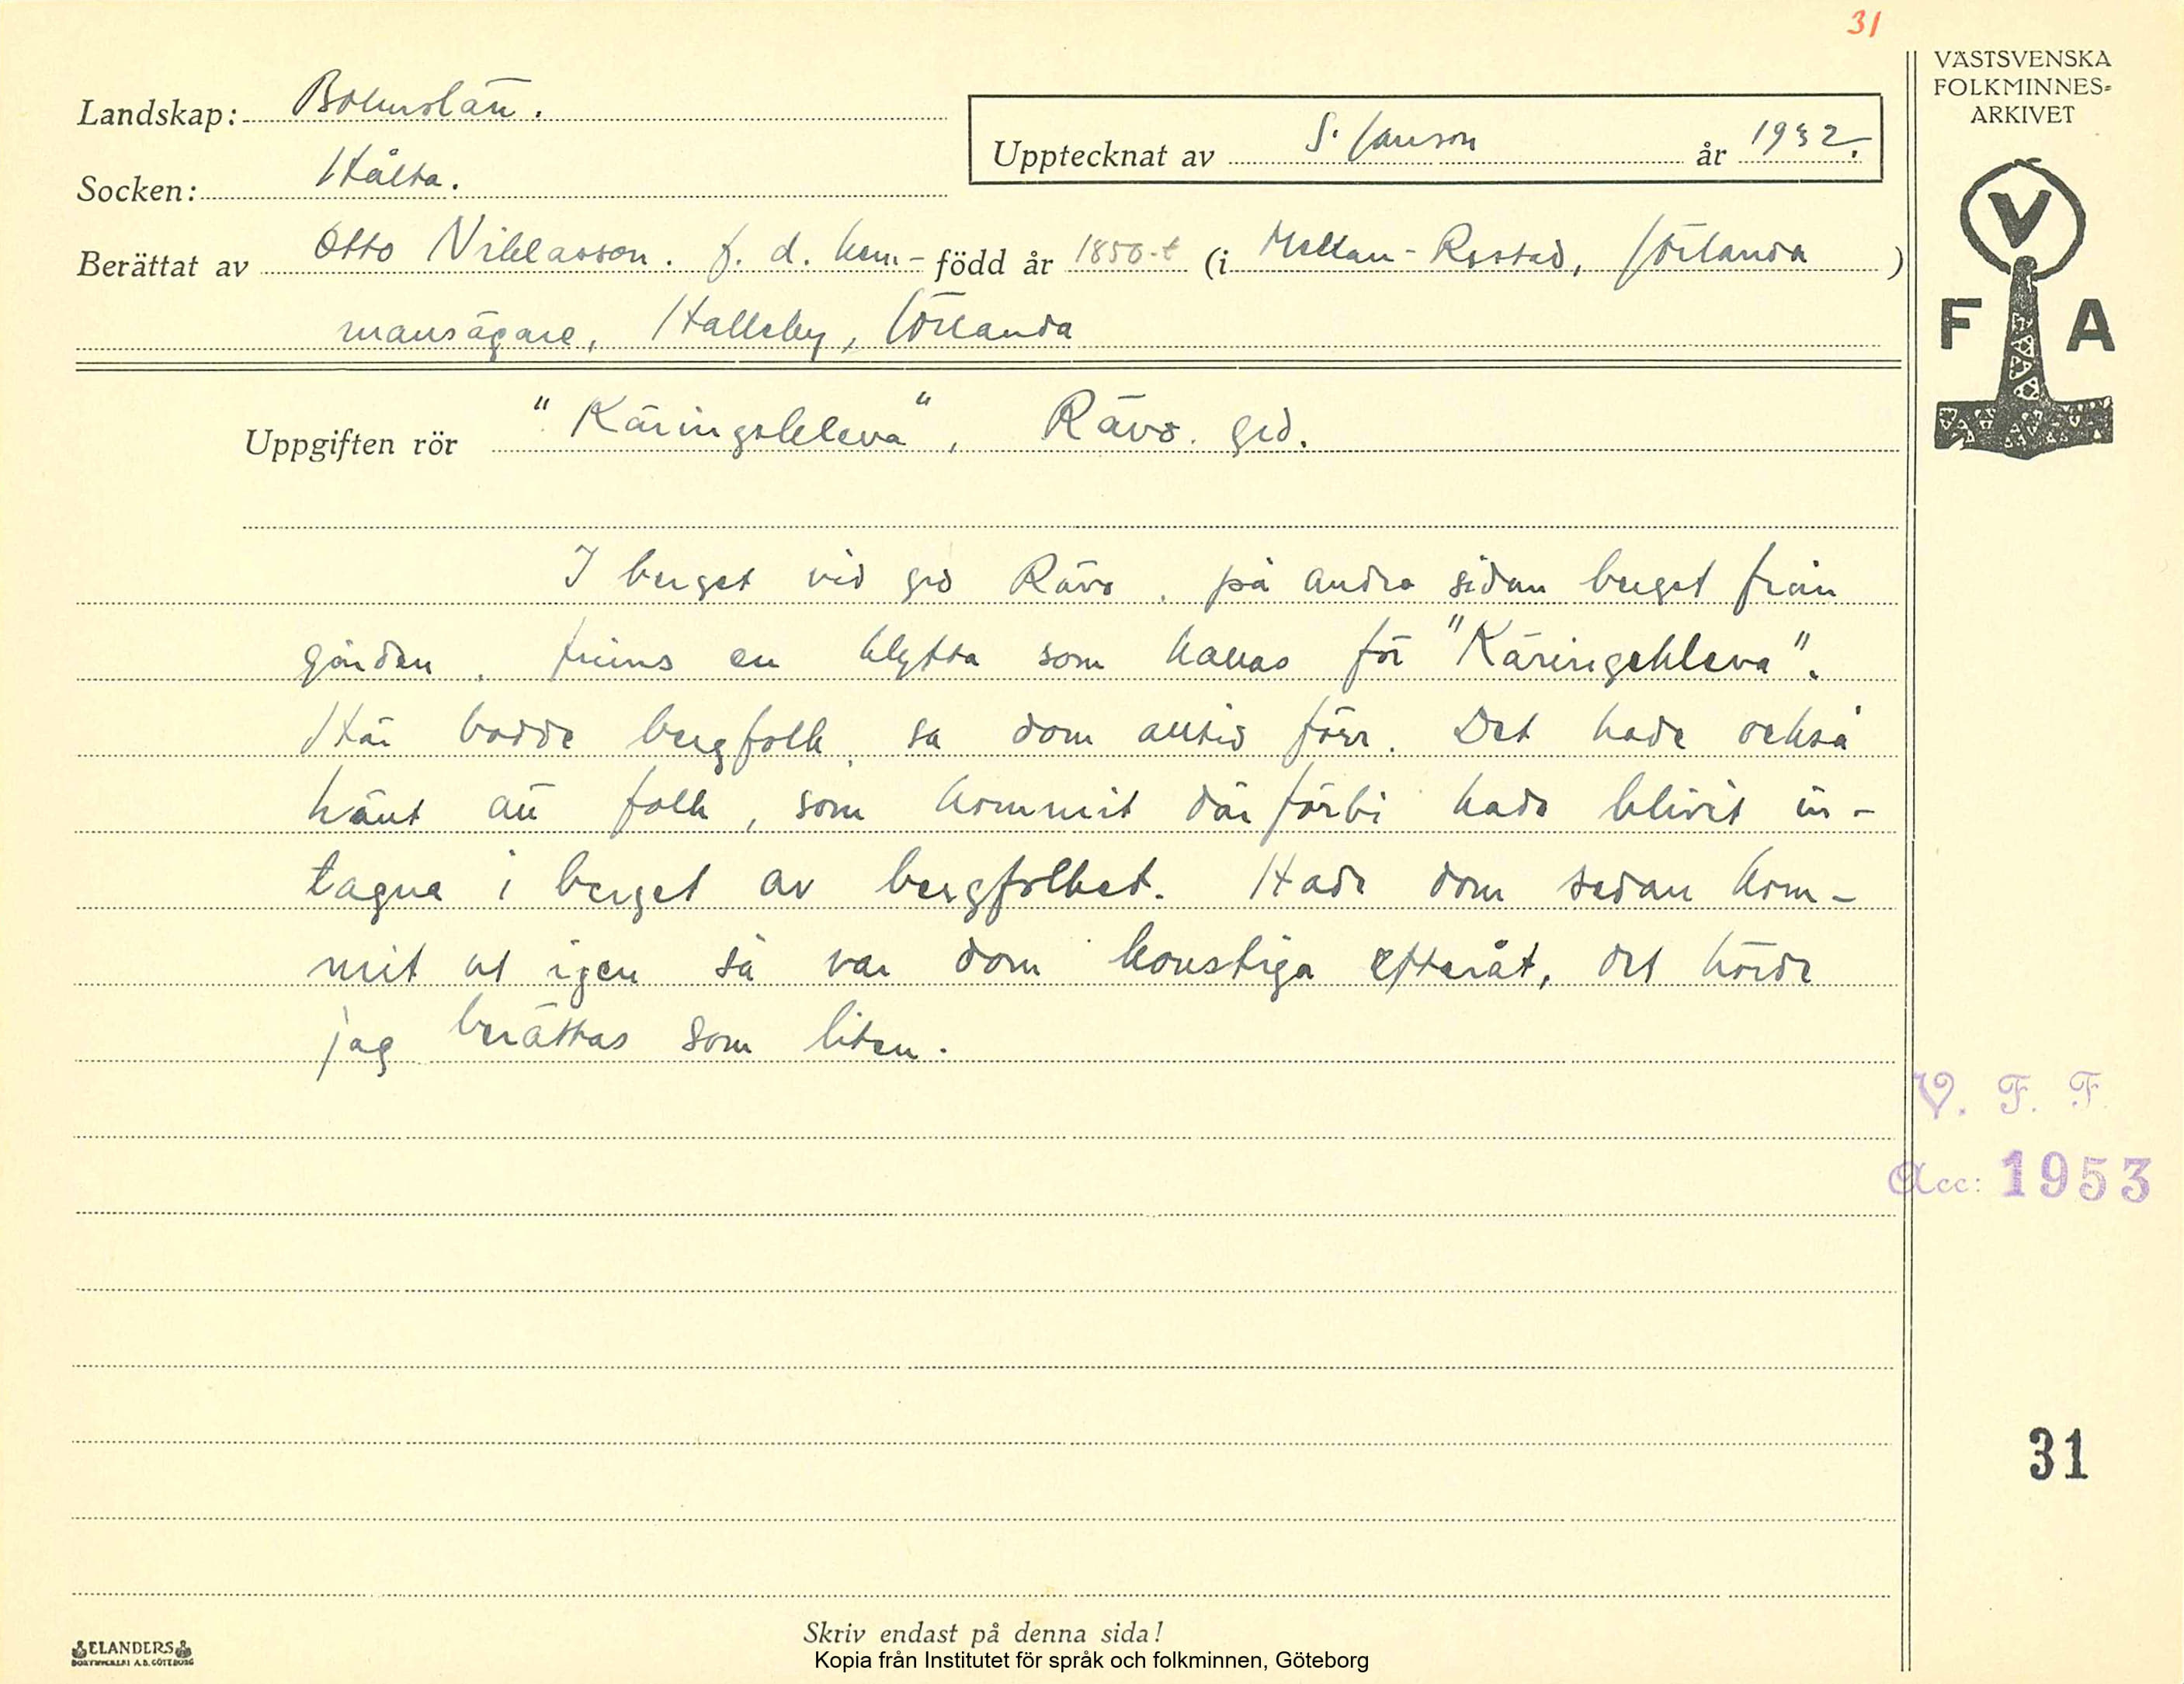 31
VÄSTSVENSKA
FOLKMINNES=
ARKIVET
Landskap: Bohuslän.
Upptecknat av S. Janson år 1932.
Socken: Hålta.
Berättat av Otto Niklasson. f. d. hem- född år 1850-t (i Mellan-Restad, Jörlanda )
mansägare, Halleby, Jörlanda
V
F A
Uppgiften rör "Käringekleva", Rävö. grd.
I berget vid grd Rävö, på andra sidan berget från
gården, finns en klyfta som kallas för "Käringekleva".
Här bodde bergfolk, sa dom alltid förr. Det hade också
hänt att folk, som kommit där förbi hade blivit in-
tagna i berget av bergfolket. Hade dom sedan kom-
mit ut igen så var dom konstiga efteråt, det hörde
jag berättas som liten.
V. F. F.
Acc: 1953
31
Skriv endast på denna sida!
ELANDERS
BOKTRYCKERI A.B. GÖTEBORG
Kopia från Institutet för språk och folkminnen, Göteborg